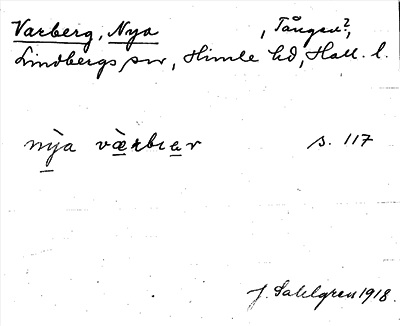 Varberg, Nya , Tången?,
Lindbergs sn, Himle hd, Hall. l.
nỳa væ̀rbɛar s. 117
J. Sahlgren 1918.